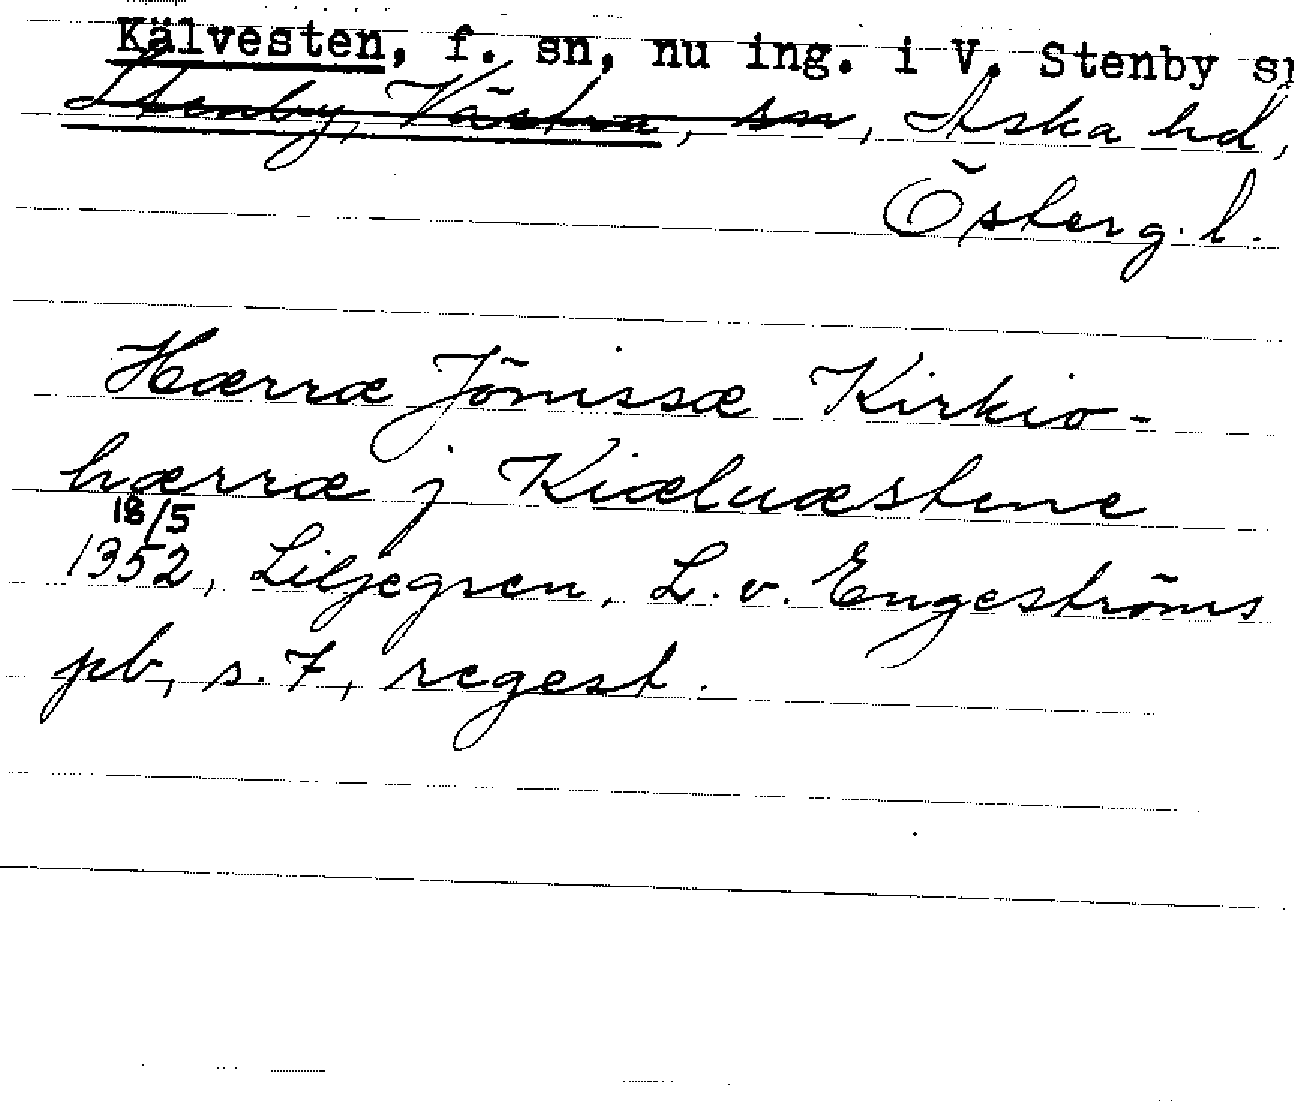 Kälvesten, f. sn, nu ing. i V. Stenby sn
Stenby, Västra, sn, Aska hd,
Österg. l.
Hærræ Jönissæ Kirkio-
hærræ j Kiæluæstene
18/5
1352, Liljegren, L. v. Engeströms
pb, s. 7, regest.